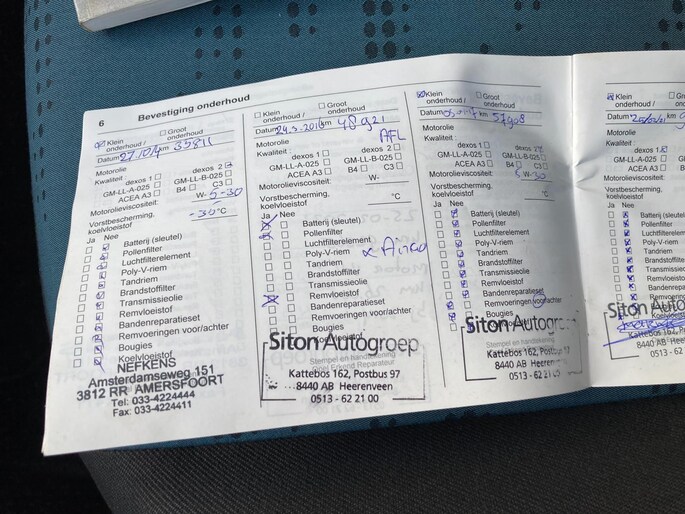 6
Bevestiging onderhoud
Klein onderhoud /
Groot onderhoud
Datum 27.10/4 km 35811
Motorolie
Kwaliteit : dexos 1 dexos 2
GM-LL-A-025 GM-LL-B-025
ACEA A3 B4 C3
Motorolieviscositeit: W- 5-30
Vorstbescherming, koelvloeistof -30 °C
Ja Nee
Batterij (sleutel)
Pollenfilter
Luchtfilterelement
Poly-V-riem
Tandriem
Brandstoffilter
Transmissieolie
Remvloeistof
Bandenreparatieset
Remvoeringen voor/achter
Bougies
Koelvloeistof
NEFKENS
Amsterdamseweg 151
3812 RR AMERSFOORT
Tel: 033-4224444
Fax: 033-4224411
Klein onderhoud /
Groot onderhoud
Datum 24.3.2016 km 48921
Motorolie
AFL
Kwaliteit :
dexos 1 dexos 2
GM-LL-A-025 GM-LL-B-025
ACEA A3 B4 C3
Motorolieviscositeit: W-
Vorstbescherming, koelvloeistof °C
Ja Nee
Batterij (sleutel)
Pollenfilter
Luchtfilterelement
Poly-V-riem
x Airco
Tandriem
Brandstoffilter
Transmissieolie
Remvloeistof
Bandenreparatieset
Remvoeringen voor/achter
Bougies
Siton Autogroep
Stempel en handtekening
Kattebos 162, Postbus 97
8440 AB Heerenveen
0513 - 62 21 00
Klein onderhoud /
Groot onderhoud
Datum km 57908
Motorolie
Kwaliteit :
dexos 1 dexos 2
GM-LL-A-025 GM-LL-B-025
ACEA A3 B4 C3
Motorolieviscositeit: 5 W-30
Vorstbescherming, koelvloeistof °C
Ja Nee
Batterij (sleutel)
Pollenfilter
Luchtfilterelement
Poly-V-riem
Tandriem
Brandstoffilter
Transmissieolie
Remvloeistof
Bandenreparatieset
Remvoeringen voor/achter
Bougies
Siton Autogroep
Kattebos 162, Postbus 97
8440 AB Heerenveen
0513 - 62 21 00
Klein onderhoud /
Groot onderhoud
Datum km
Motorolie
Kwaliteit :
dexos 1
GM-LL-A-025
ACEA A3
Motorolieviscositeit:
Vorstbescherming, koelvloeistof
Ja Nee
Batterij (sleutel)
Pollenfilter
Luchtfilterelement
Poly-V-riem
Tandriem
Brandstoffilter
Transmissieolie
Remvloeistof
Bandenreparatieset
Remvoeringen
Siton Auto
Kattebos 162
8440 AB H
0513 - 62